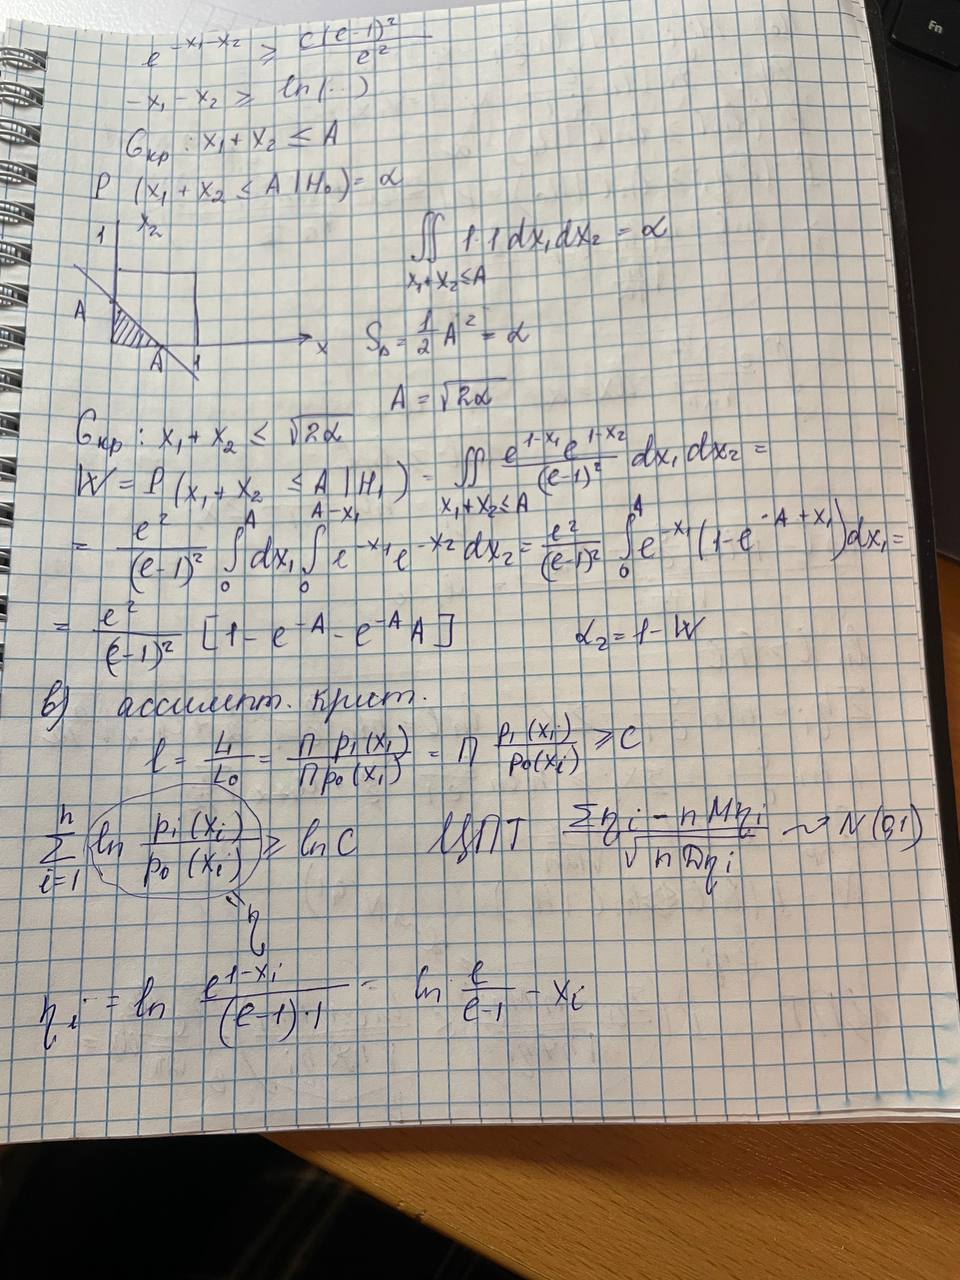 e^{-x₁-x₂} ≥ c(e-1)²/e²
-x₁ - x₂ ≥ ln(...)
Gкр : x₁ + x₂ ≤ A
P (x₁ + x₂ ≤ A | H₀) = α
x₂
1
A
A
1
x
∬_{x₁+x₂≤A} 1·1 dx₁dx₂ = α
S_Δ = 1/2 A² = α
A = √(2α)
Gкр : x₁ + x₂ ≤ √(2α)
W = P(x₁ + x₂ ≤ A | H₁) = ∬_{x₁+x₂≤A} e^{1-x₁}e^{1-x₂}/(e-1)² dx₁ dx₂ =
= e²/(e-1)² ∫₀^A dx₁ ∫₀^{A-x₁} e^{-x₁}e^{-x₂} dx₂ = e²/(e-1)² ∫₀^A e^{-x₁}(1-e^{-A+x₁})dx₁ =
= e²/(e-1)² [1 - e^{-A} - e^{-A}A] α₂ = 1-W
в) ассимпт. крит.
l = L₁/L₀ = П p₁(xᵢ)/П p₀(xᵢ) = П p₁(xᵢ)/p₀(xᵢ) ≥ C
Σ_{i=1}^n ln p₁(xᵢ)/p₀(xᵢ) ≥ ln C ЦПТ (Σηᵢ - nMηᵢ)/√(nDηᵢ) ~> N(0,1)
η
ηᵢ = ln e^{1-xᵢ}/((e-1)·1) = ln e/(e-1) - xᵢ
Fn